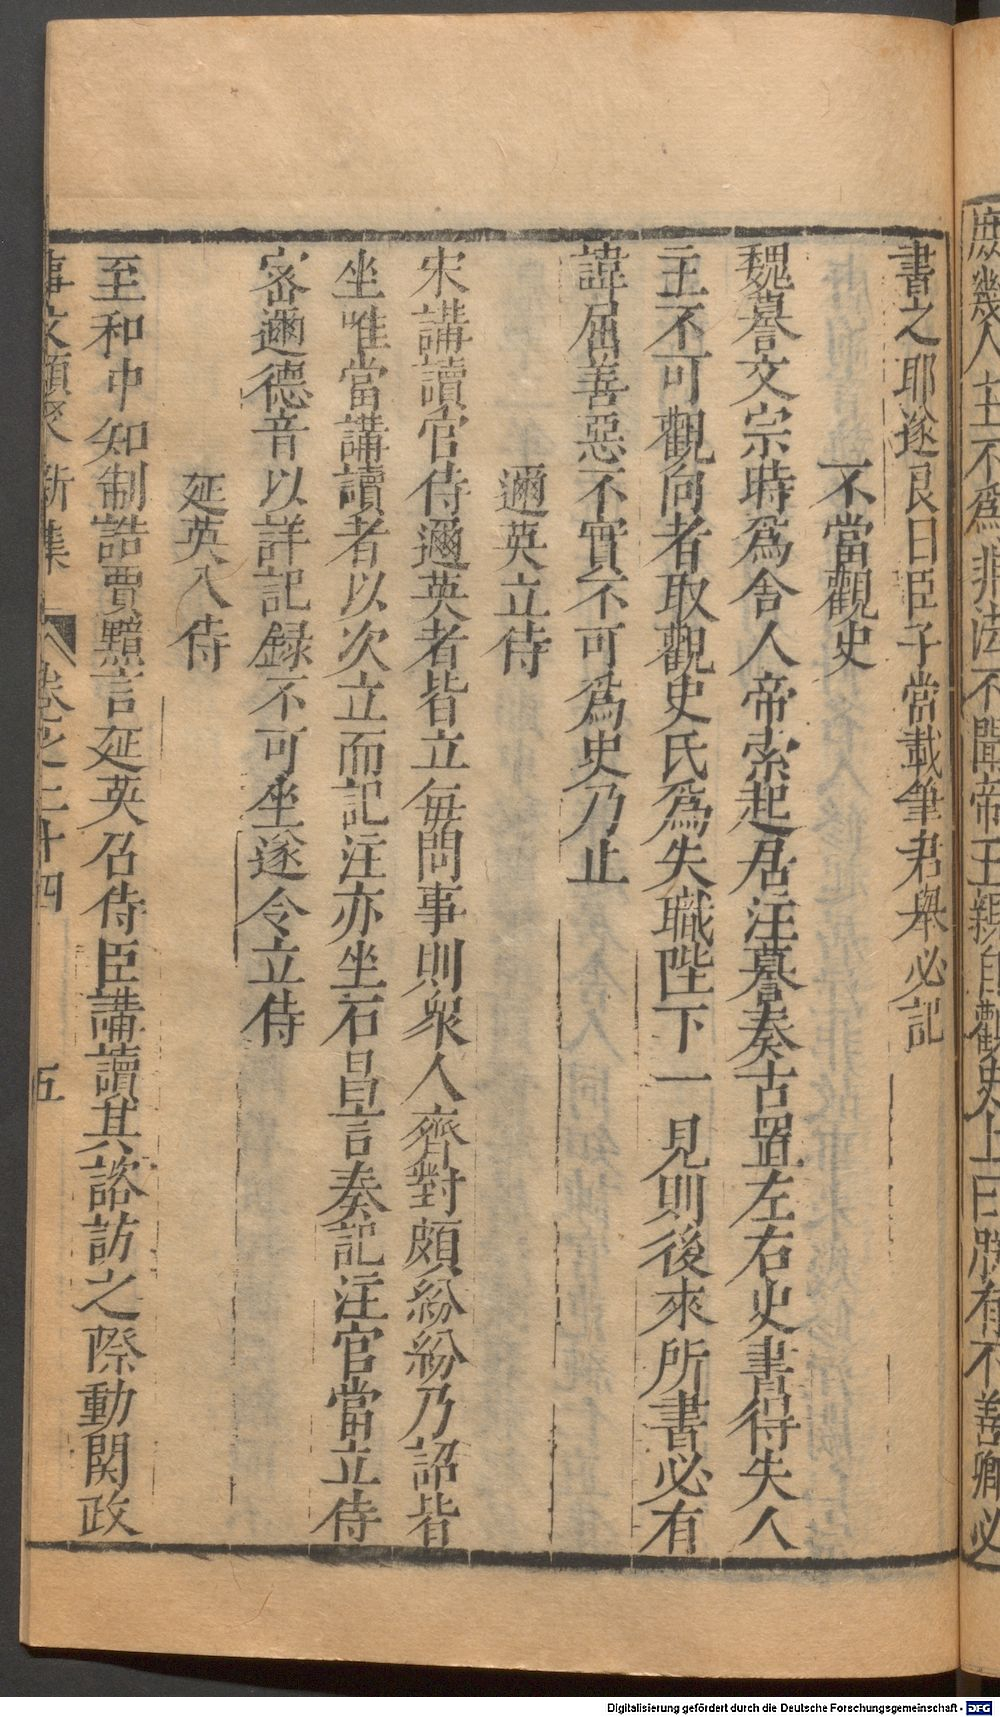 庶幾人主不為非法不聞帝王親自觀史上曰朕有不善卿必
書之耶遂良曰臣子當載筆君舉必記
不當觀史
魏謩文宗時爲舍人帝索起居注謩奏古置左右史書得失人
主不可觀向者取觀史氏爲失職陛下一見則後來所書必有
諱屈善惡不實不可爲史乃止
邇英立侍
宋講讀官侍邇英者皆立每問事則衆人齊對頗紛紛乃詔皆
坐唯當講讀者以次立而記注亦坐石昌言奏記注官當立侍
宻邇德音以詳記録不可坐遂令立侍
延英入侍
至和中知制誥賈黯言延英召侍臣講讀其諮訪之際動関政
事文類聚新集 卷之二十四 五
Digitalisierung gefördert durch die Deutsche Forschungsgemeinschaft - DFG